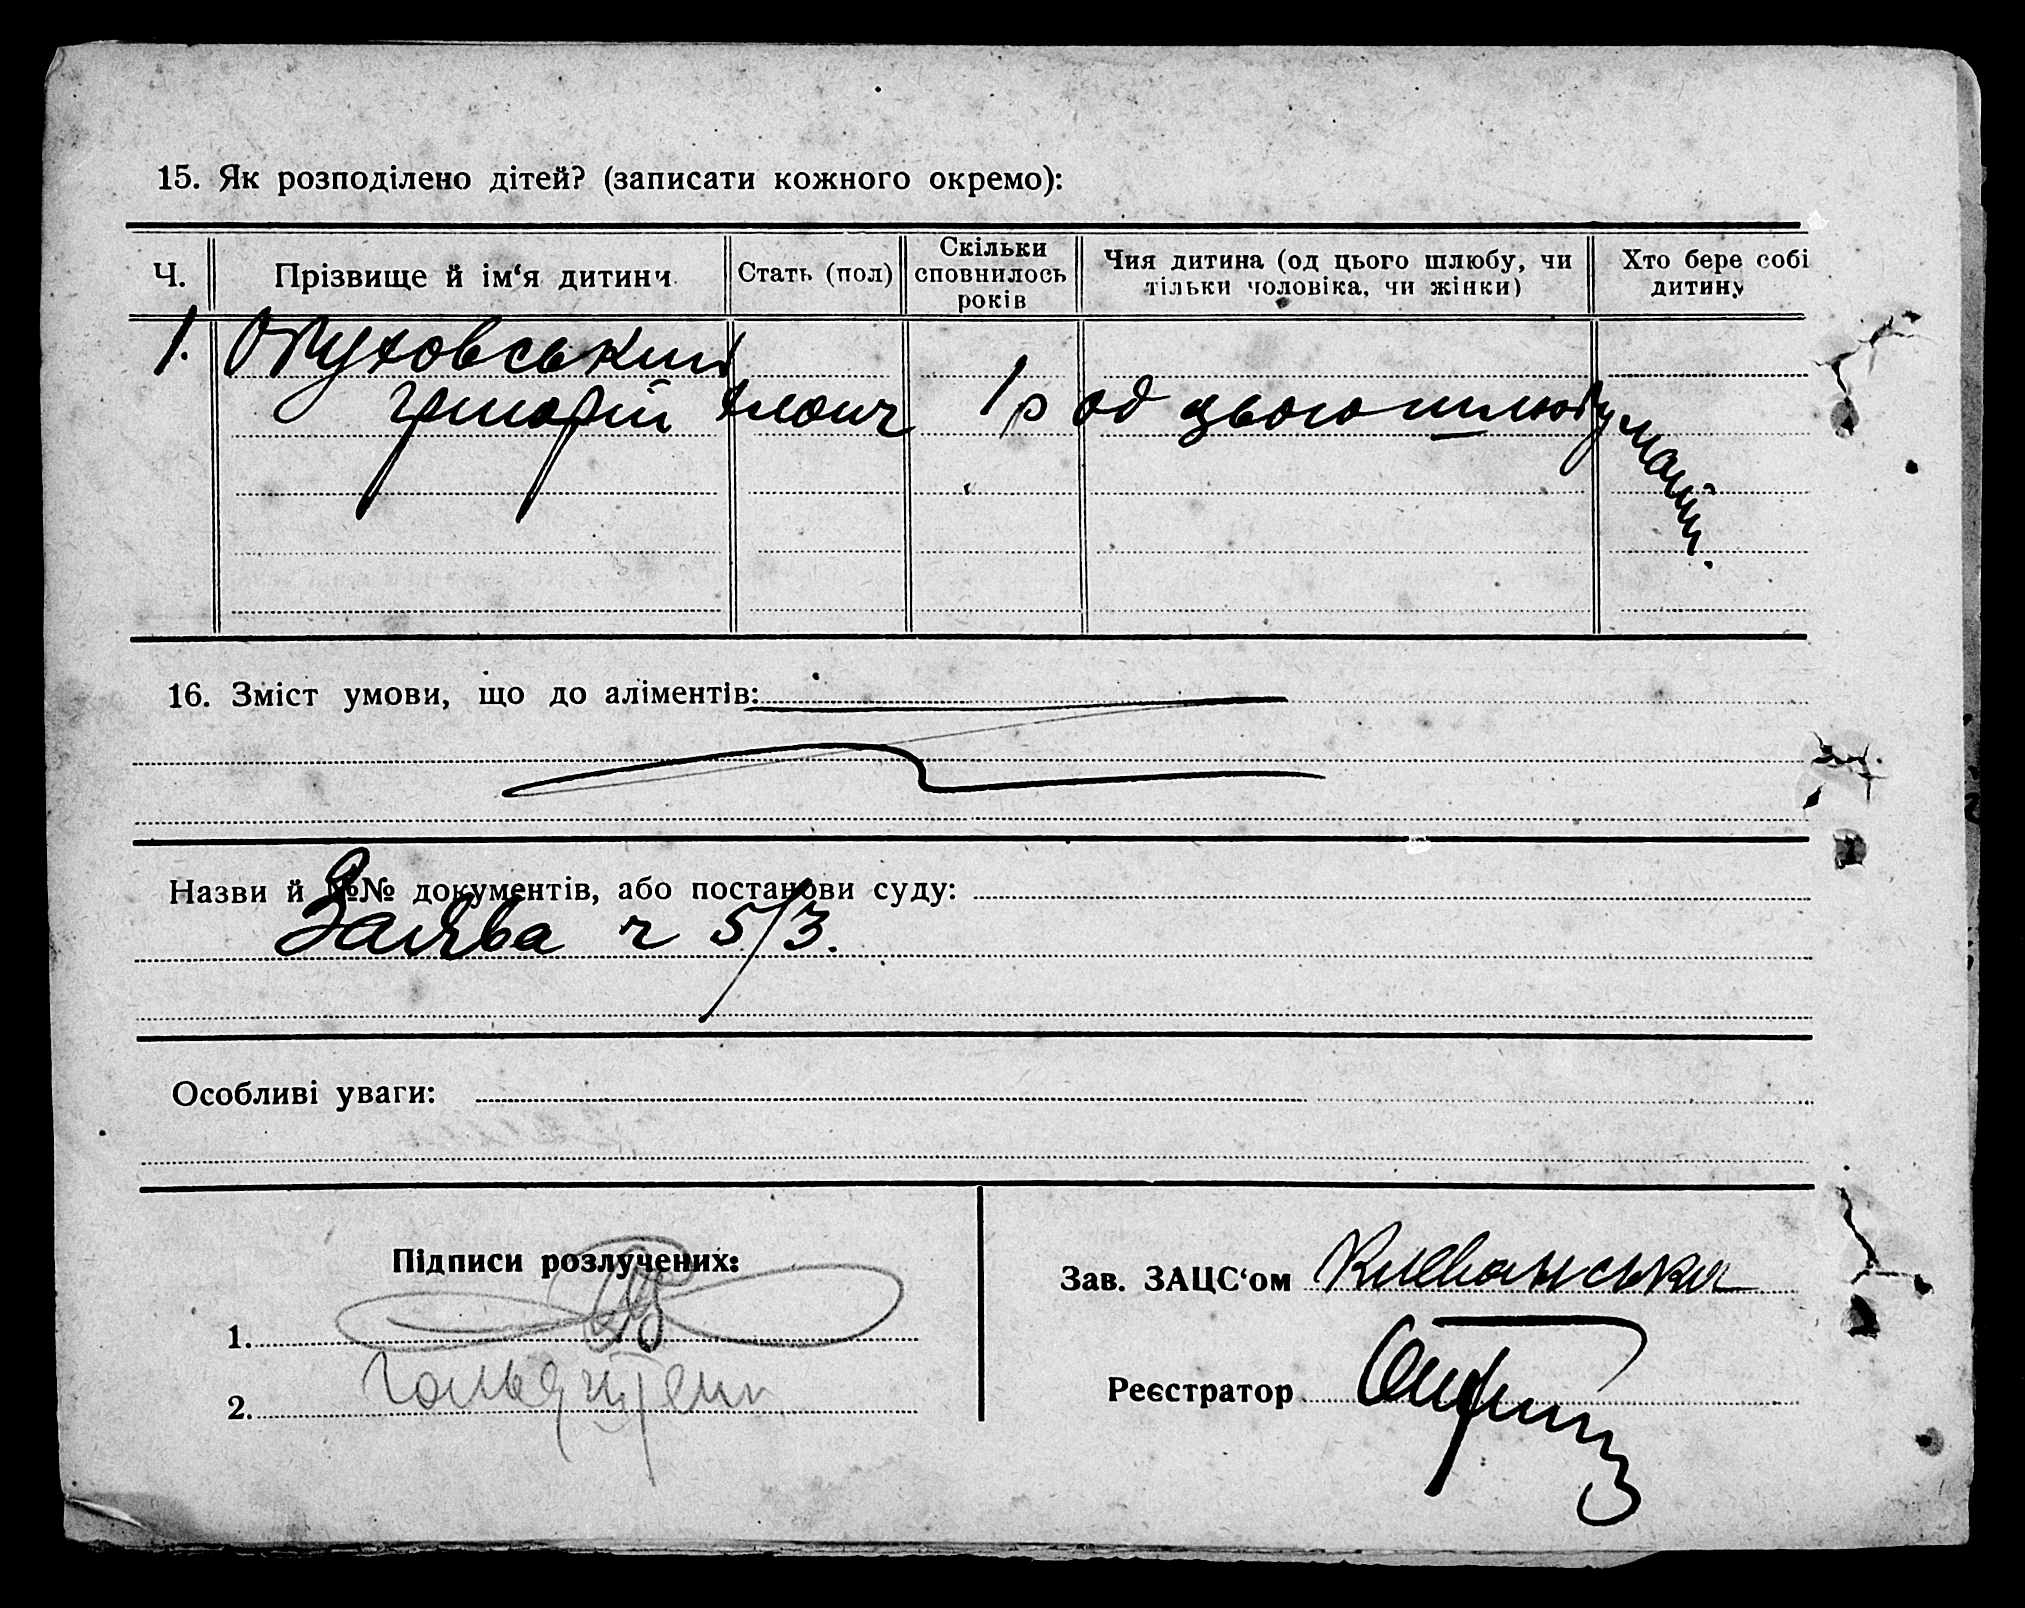 15. Як розподілено дітей? (записати кожного окремо):
Ч. Прізвище й ім‘я дитини Стать (пол) Скільки сповнилось років Чия дитина (од цього шлюбу, чи тільки чоловіка, чи жінки) Хто бере собі дитину
1.
Григорій хлопч 1 р од цього шлюбу матір.
16. Зміст умови, що до аліментів:
Назви й №№ документів, або постанови суду:
Заява ч 5/3.
Особливі уваги:
Підписи розлучених:
Зав. ЗАЦС‘ом
1.
Реєстратор
2.